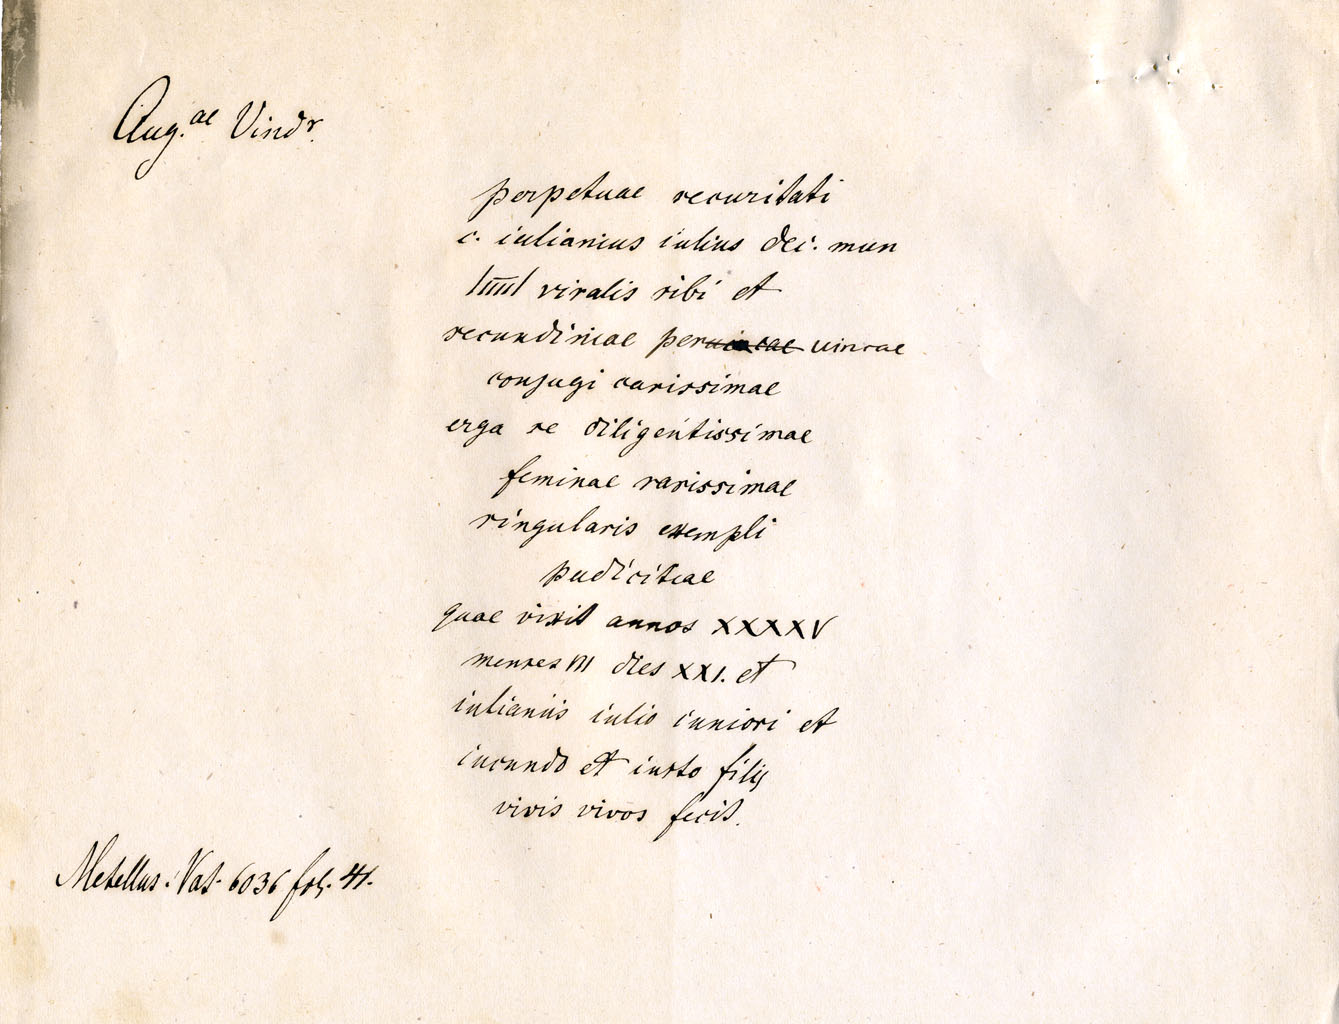 Aug.ae Vindr.
perpetuae securitati
c. iulianius iulius dec. mun
IIIIII viralis sibi et
secundiniae peruincae uincae
conjugi carissimae
erga se diligentissimae
feminae rarissimae
singularis exempli
pudicitiae
quae vixit annos XXXXV
menses VII dies XXI. et
iulianiis iulio iuniori et
iucundo et iusto filij
vivis vivos fecit.
Metellus. Vat. 6036 fol. 41.